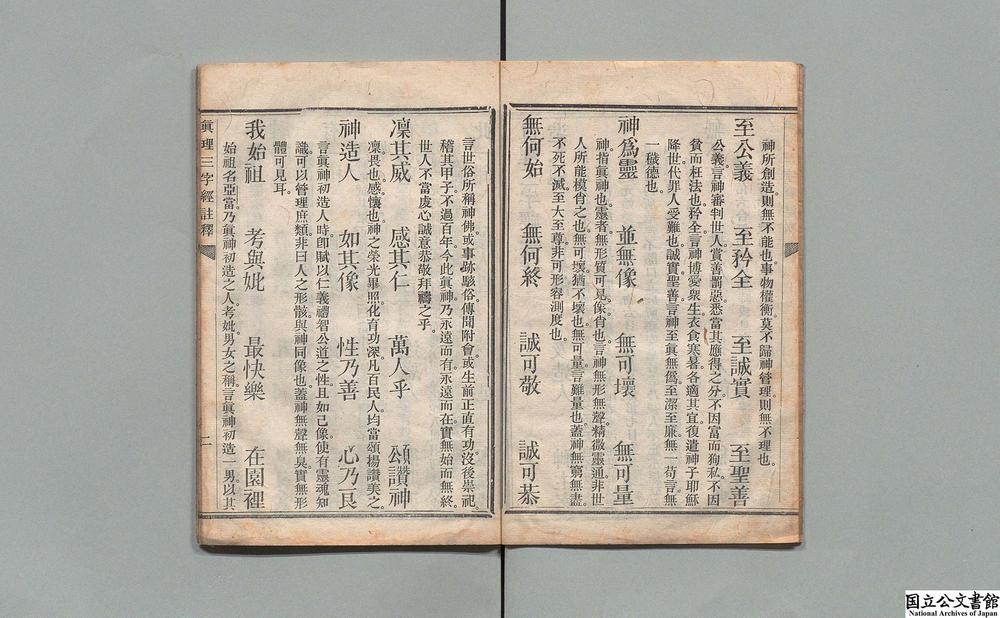 神所創造則無不能也。事物權衡莫不歸神管理則無不理也。
至公義　至矜全　至誠實　至聖善
公義言神審判世人賞善罰惡悉當其應得之分不因富而狥私不因
貧而枉法也。矜全言神博愛衆生衣食寒暑各適其宜復遣神子耶穌
降世代罪人受難也。誠實聖善言神至眞無僞至潔至厎無一苟言無
一穢德也。
神爲靈　並無像　無可壞　無可量
神指眞神也。靈者無形質可見像肖也。言神無形無聲精微靈通非世
人所能模肖之也。無可壞猶不壞也。無可量言難量也。蓋神無窮無盡
不死不滅至大至尊非可形容測度也。
無何始　無何終　誠可敬　誠可恭
言世俗所稱神佛或事跡駭俗傳聞附會或生前正直有功沒後崇祀
稽其甲子不過百年。今此眞神乃永遠而有永遠而在實無始而無終。
世人不當虔心誠意恭敬拜禱之乎。
凜其威　感其仁　萬人乎　頌讚神
凜畏也。感懷也。神之榮光畢照化有功深凡百民人均當頌揚讚美之。
神造人　如其像　性乃善　心乃良
言眞神初造人時卽賦以仁義禮智公道之性且如己像使有靈魂知
識可以管理庶類非曰人之形骸與神同像也。蓋神無聲無臭實無形
體可見耳。
我始祖　考與妣　最快樂　在園裡
始祖名亞當乃眞神初造之人考妣男女之稱言眞神初造一男以其
眞理三字經註釋
二
国立公文書館
National Archives of Japan